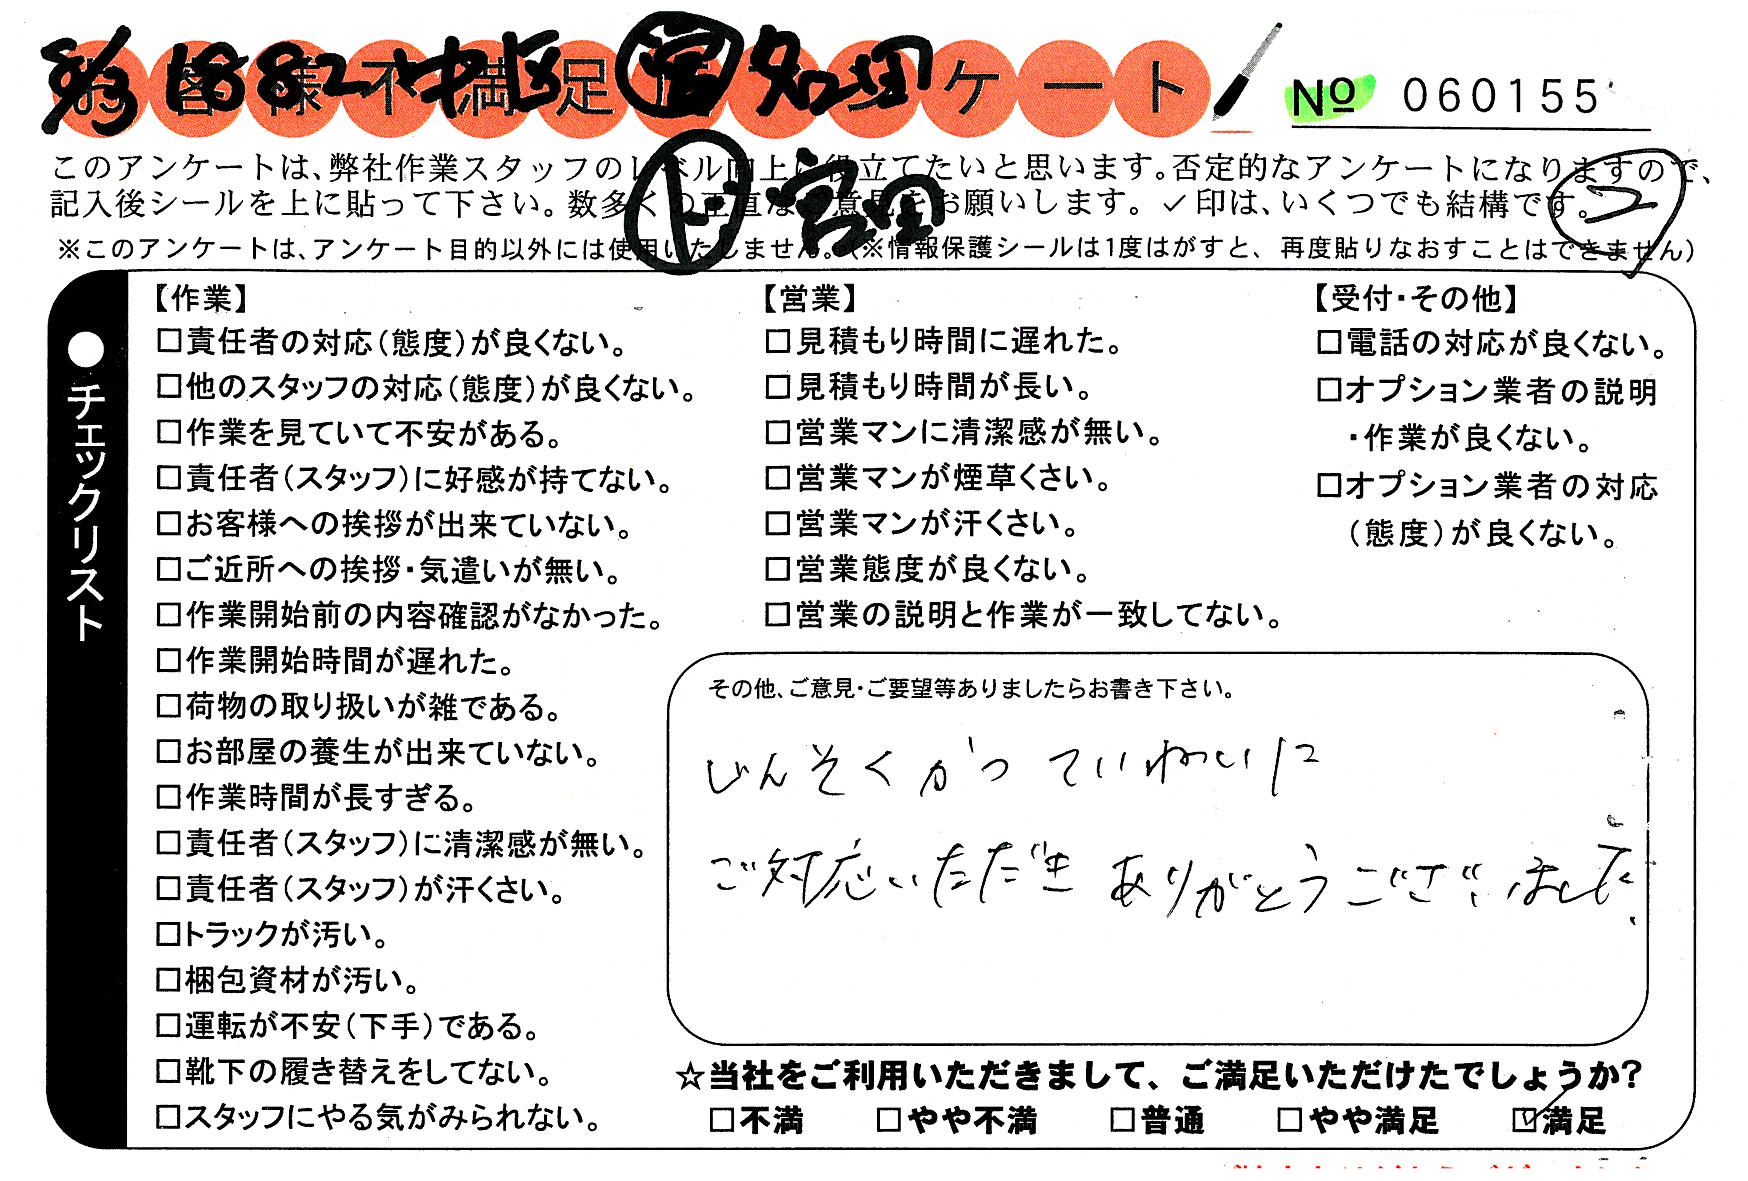 8/3 1882 中区 宮 知里
お客様不満足アンケート
No 060155
このアンケートは、弊社作業スタッフのレベル向上に役立てたいと思います。否定的なアンケートになりますので、
記入後シールを上に貼って下さい。数多くの正直なご意見をお願いします。✓印は、いくつでも結構です。
ト 宮里
コ
※このアンケートは、アンケート目的以外には使用いたしません。(※情報保護シールは1度はがすと、再度貼りなおすことはできません)
●チェックリスト
【作業】
□責任者の対応(態度)が良くない。
□他のスタッフの対応(態度)が良くない。
□作業を見ていて不安がある。
□責任者(スタッフ)に好感が持てない。
□お客様への挨拶が出来ていない。
□ご近所への挨拶・気遣いが無い。
□作業開始前の内容確認がなかった。
□作業開始時間が遅れた。
□荷物の取り扱いが雑である。
□お部屋の養生が出来ていない。
□作業時間が長すぎる。
□責任者(スタッフ)に清潔感が無い。
□責任者(スタッフ)が汗くさい。
□トラックが汚い。
□梱包資材が汚い。
□運転が不安(下手)である。
□靴下の履き替えをしてない。
□スタッフにやる気がみられない。
【営業】
□見積もり時間に遅れた。
□見積もり時間が長い。
□営業マンに清潔感が無い。
□営業マンが煙草くさい。
□営業マンが汗くさい。
□営業態度が良くない。
□営業の説明と作業が一致してない。
【受付・その他】
□電話の対応が良くない。
□オプション業者の説明
・作業が良くない。
□オプション業者の対応
(態度)が良くない。
その他、ご意見・ご要望等ありましたらお書き下さい。
じんそくかつ ていねいに
ご対応いただき ありがとうございました。
☆当社をご利用いただきまして、ご満足いただけたでしょうか?
□不満 □やや不満 □普通 □やや満足 ☑満足